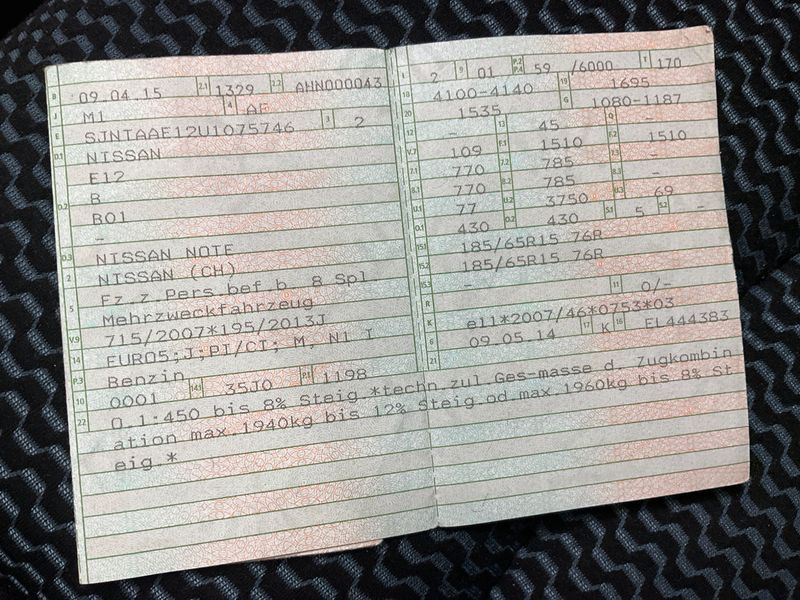 B 09.04.15 2.1 1329 2.2 AHN000043
J M1 4 AF
E SJNTAAE12U1075746 3 2
D.1 NISSAN
E12
D.2 B
B01
-
D.3 NISSAN NOTE
2 NISSAN (CH)
5 Fz.z.Pers.bef.b. 8 Spl
Mehrzweckfahrzeug
V.9 715/2007*195/2013J
14 EURO5;J;PI/CI; M, N1 I
P.3 Benzin
10 0001 14.1 35J0 P.1 1198
22 O.1:450 bis 8% Steig.*techn.zul.Ges-masse d. Zugkombin
ation max.1940kg bis 12% Steig.od max.1960kg bis 8% St
eig.*
L 2 9 01 P.2 P.4 59 /6000 T 170
18 4100-4140 19 1695
20 1535 G 1080-1187
12 - 13 45 Q -
V.7 109 F.1 1510 F.2 1510
7.1 770 7.2 785 7.3 -
8.1 770 8.2 785 8.3 -
U.1 77 U.2 3750 U.3 69
O.1 430 O.2 430 S.1 5 S.2 -
15.1 185/65R15 76R
15.2 185/65R15 76R
15.3 -
R - 11 0/-
K e11*2007/46*0753*03
6 09.05.14 17 K 16 EL444383
21